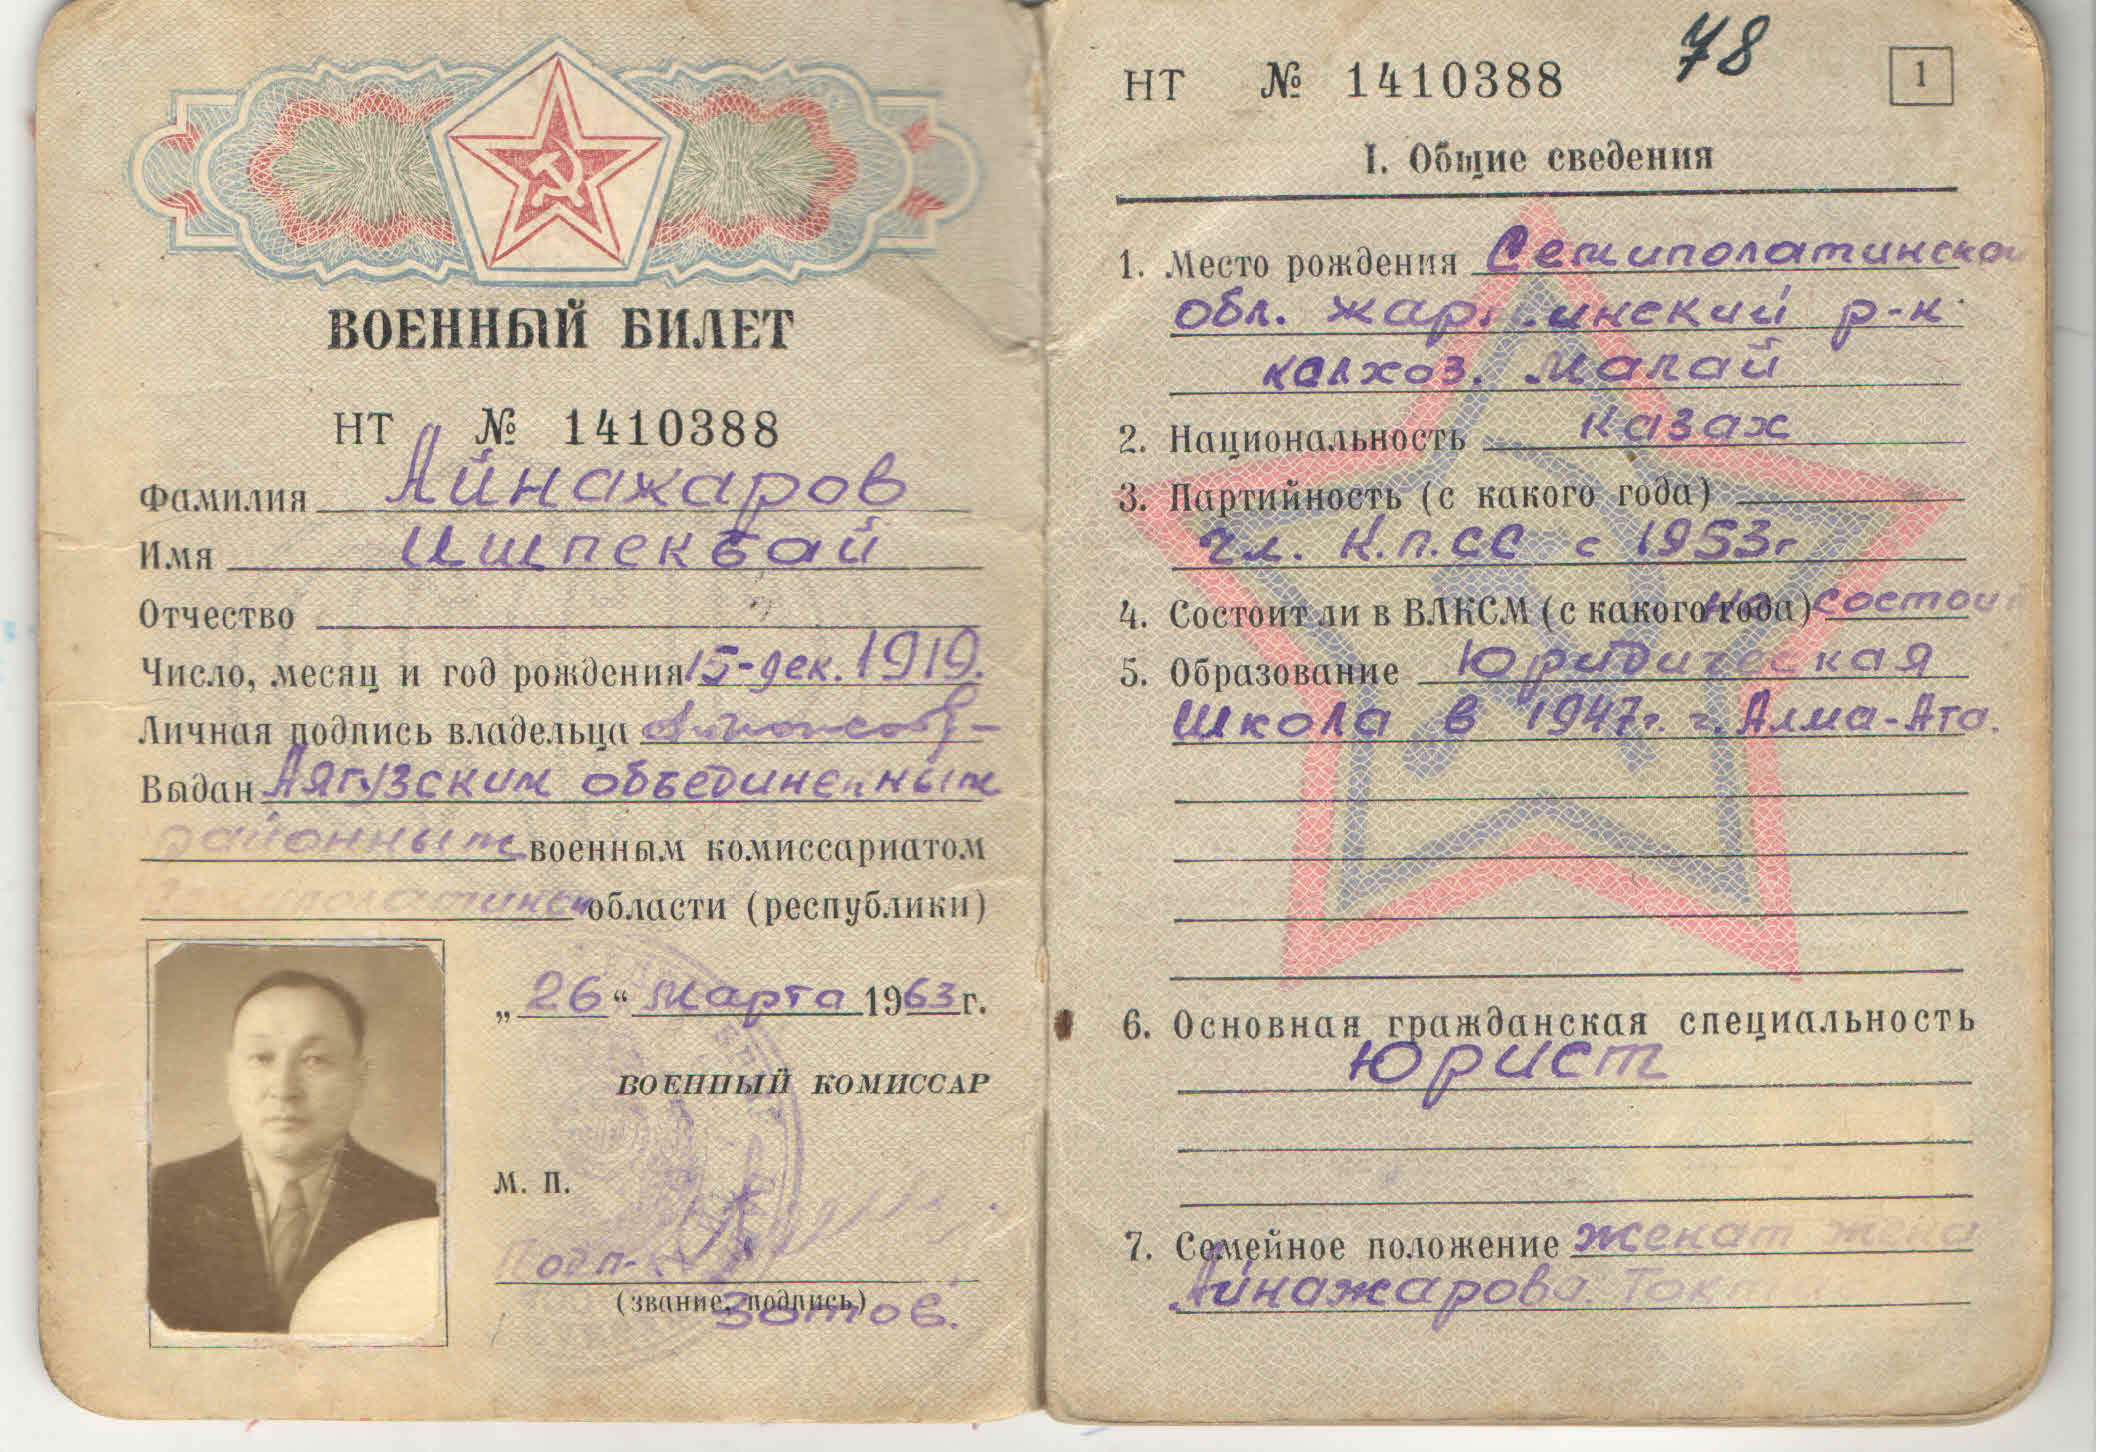 ВОЕННЫЙ БИЛЕТ
НТ № 1410388
Фамилия Айнажаров
Имя Ишпекбай
Отчество
Число, месяц и год рождения 15-дек. 1919.
Личная подпись владельца
Выдан Аягузским объединенным
районным военным комиссариатом
Семиполатинск области (республики)
„26“ марта 1963 г.
ВОЕННЫЙ КОМИССАР
М. П.
Подп-к
(звание, подпись)
Зотов.
НТ № 1410388 78 1
I. Общие сведения
1. Место рождения Семиполатинской
обл. жарминский р-н
колхоз. Малай
2. Национальность казах
3. Партийность (с какого года)
чл. К.П.СС с 1953г
4. Состоит ли в ВЛКСМ (с какого года) не состоит
5. Образование Юридическая
школа в 1947г. г. Алма-Ата.
6. Основная гражданская специальность
юрист
7. Семейное положение женат жена
Айнажарова Ток